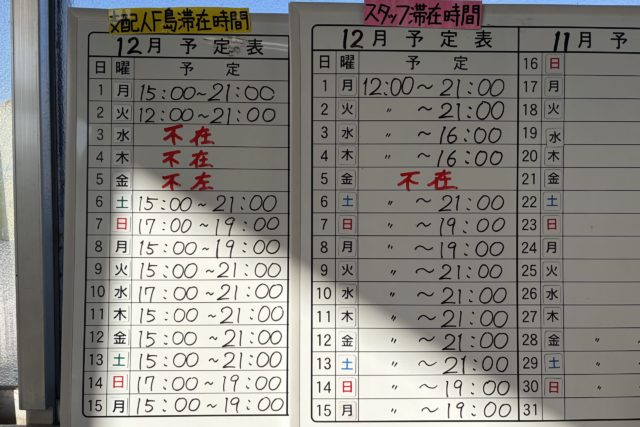 支配人F島滞在時間
12月予定表
日 曜 予定
1 月 15:00~21:00
2 火 12:00~21:00
3 水 不在
4 木 不在
5 金 不在
6 土 15:00~21:00
7 日 17:00~19:00
8 月 15:00~19:00
9 火 15:00~21:00
10 水 17:00~21:00
11 木 15:00~21:00
12 金 15:00~21:00
13 土 15:00~21:00
14 日 17:00~19:00
15 月 15:00~19:00
スタッフ滞在時間
12月予定表
日 曜 予定
1 月 12:00~21:00
2 火 〃 ~21:00
3 水 〃 ~16:00
4 木 〃 ~16:00
5 金 不在
6 土 〃 ~21:00
7 日 〃 ~19:00
8 月 〃 ~19:00
9 火 〃 ~21:00
10 水 〃 ~21:00
11 木 〃 ~21:00
12 金 〃 ~21:00
13 土 〃 ~21:00
14 日 〃 ~19:00
15 月 〃 ~19:00
11月予
16 日
17 月
18 火
19 水
20 木
21 金
22 土
23 日
24 月
25 火
26 水
27 木
28 金 〃 〃
29 土 〃 〃
30 日 〃 〃
31